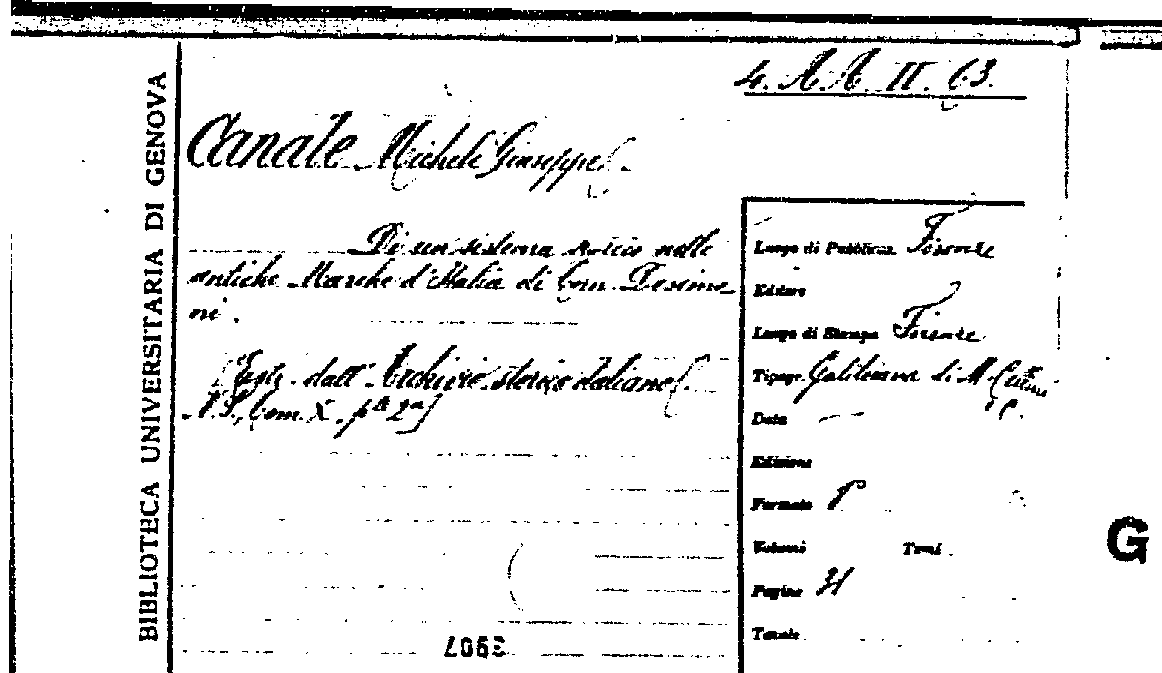 BIBLIOTECA UNIVERSITARIA DI GENOVA
4. A A II. 63.
Canale Michele Giuseppe.
Di un sistema storico nelle
antiche Marche d'Italia di Corn. Desimo-
ni.
(Estr. dall' Archivio storico italiano
N. S., tom X. p.te 2a)
3907
Luogo di Pubblicaz. Firenze
Editore
Luogo di Stampa Firenze
Tipogr. Galileiana di M. Cellini
e C.
Data —
Edizione
Formato
Volumi Tomi
Pagine
Tavole
G